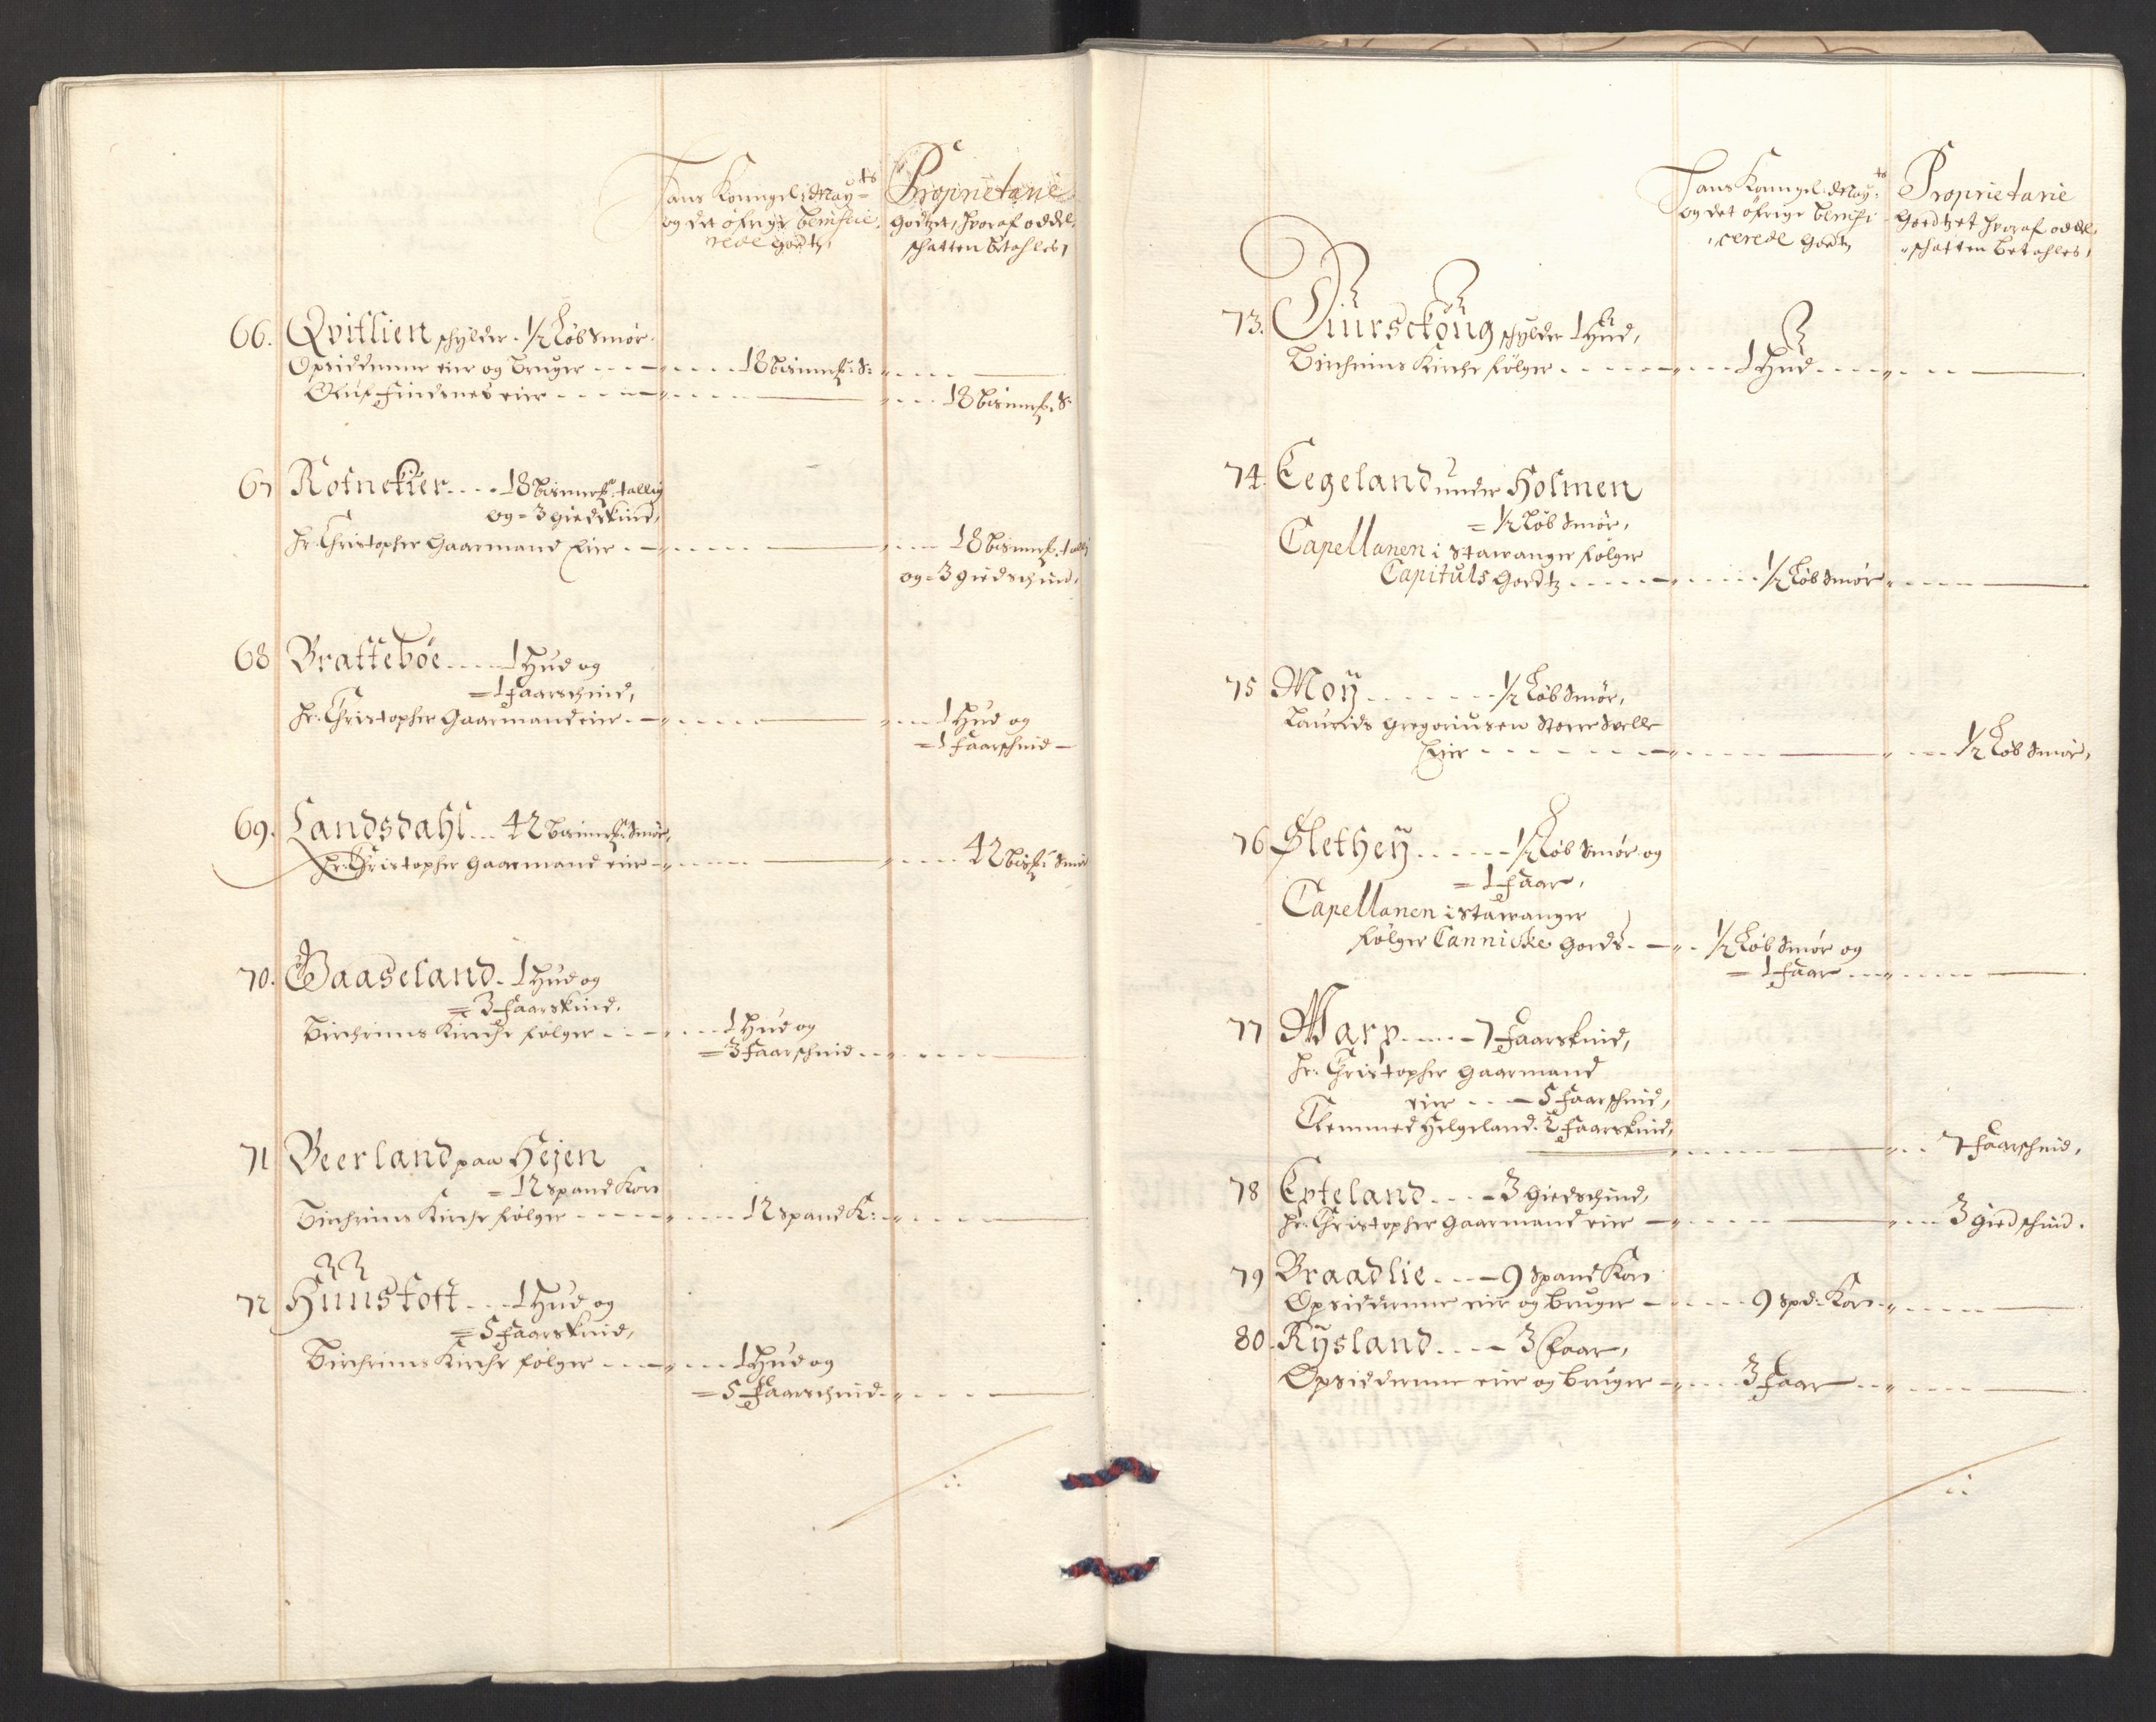 Hans Kongel: May:ts
og det öfrige benificie-
rede Godtz,
Proprietarie
Godtzet, hvoraf oddel-
schatten betahles,
66. Qvitlien schylder. ½ Løb Smør.
Opsidderne eier og bruger 18 bismer℔: S:
Oluf Findsnes eier 18 bismer℔: S:
67 Rofnekier 18 bismer℔: tallig
og = 3 giedskind,
Hr: Christopher Gaarmand Eier 18 bismer℔: tallig
og = 3 giedschind,
68 Brattebøe 1 Hud og
= 1 Faarschind,
Hr: Christopher Gaarmand eier 1 Hud og
= 1 Faarschind
69. Landsdahl 42 bismer℔: Smør,
Hr: Christopher Gaarmand eier 42 bis℔: Smør
70. Gaaseland 1 Hud og
= 3 Faarskind.
Birchrims Kirche følger 1 Hud og
= 3 Faarschind
71 Beerland paa Hejen
= 12 spand Korn
Birchrims Kirche følger 12 spand K:
72 Hunstoft 1 Hud og
= 5 Faarskind,
Birchrims Kirche følger 1 Hud og
= 5 Faarschind
Hans Kongel: May:ts
og det öfrige benifi-
cerede Godtz
Proprietarie
Goedtzet hvoraf oddel-
schatten betahles,
73. Diurschoug schylder 1 Hud,
Birchrims Kirche følger 1 Hud
74. Eegeland under Holmen
= ½ Løb Smør,
Capellanen i Stawanger følger
Capituls Goedtz ½ Løb Smør
75 Moÿ ½ Løb Smør,
Laurids Gregoriusen Storre Svelle
Eier ½ Løb Smør,
76 Sletheÿ ½ Løb Smør og
= 1 Faar,
Capellanen i Stawanger
følger Cannicke Gords ½ Løb Smør og
= 1 Faar
77 Warp 7 Faarskind,
Hr: Christopher Gaarmand
eier 5 Faarschind,
Clemmed Helgeland 2 Faarskind,
7 Faarschind,
78 Epteland 3 Giedschind,
Hr: Christopher Gaarmand eier 3 giedschind.
79 Braadlie 9 Spand Korn
Opsidderne eier og bruger 9 Spd: Korn
80. Rÿsland 3 Faar,
Opsidderne eier og bruger 3 Faar